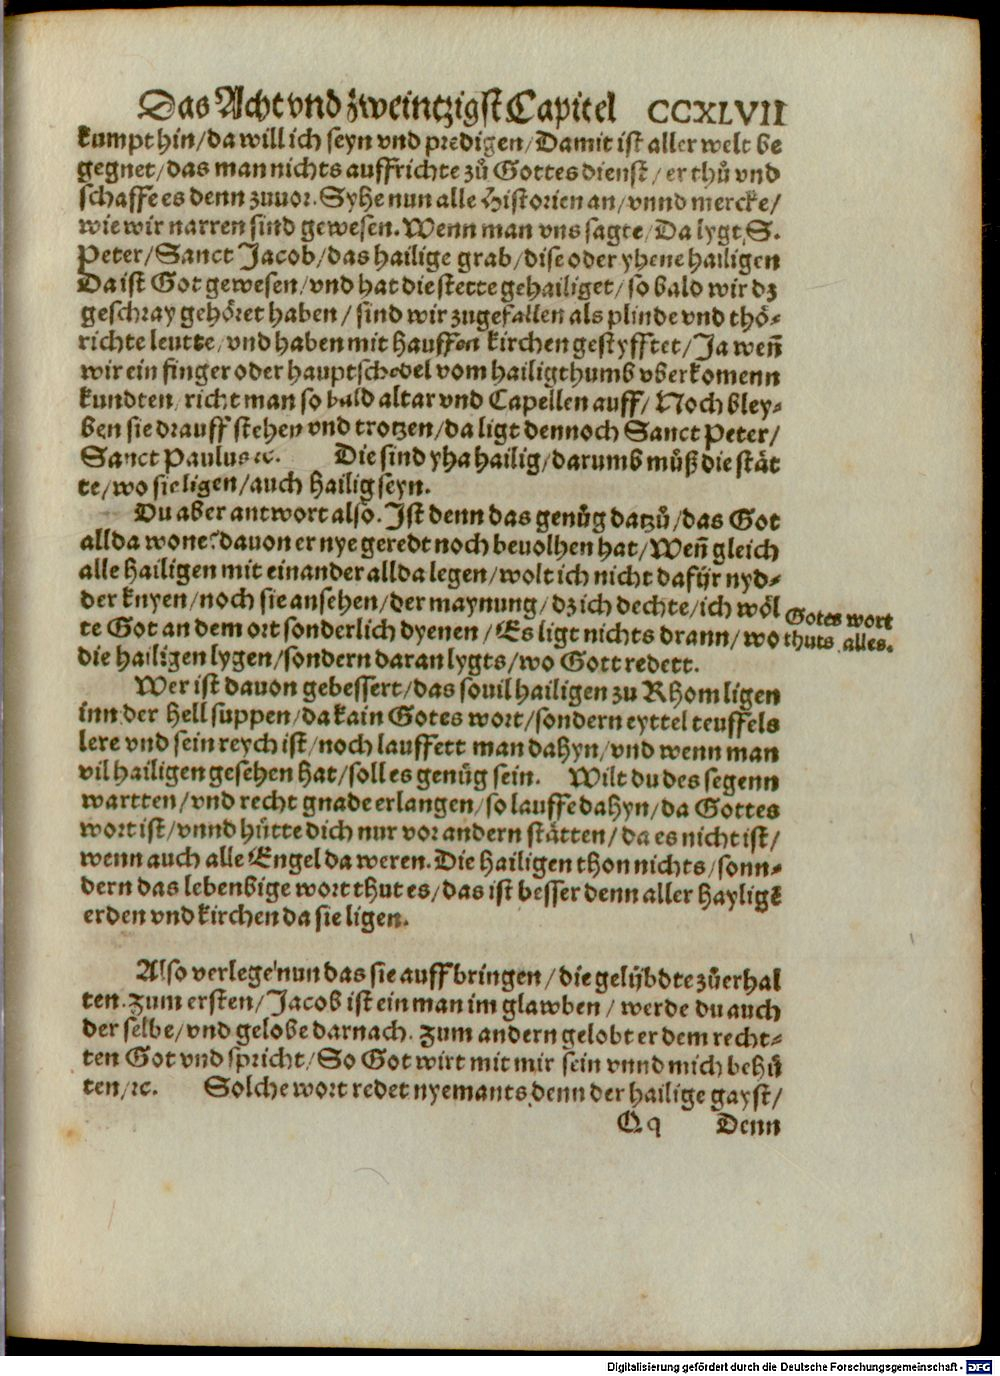 Das Acht vnd zweintzigst Capitel CCXLVII
kumpt hin/da will ich seyn vnd predigen/Damit ist aller welt be
gegnet/das man nichts auffrichte zů Gottes dienst/er thů vnd
schaffe es denn zuuor. Syhe nun alle Historien an/vnnd mercke/
wie wir narren sind gewesen. Wenn man vns sagte/Da lygt S.
Peter/Sanct Jacob/das hailige grab/dise oder yhene hailigen
Da ist Got gewesen/vnd hat die stette gehailiget/so bald wir dz
geschray gehöret haben/sind wir zugefallen als plinde vnd thö⸗
richte leutte/vnd haben mit hauffen kirchen gestyfftet/Ja weñ
wir ein finger oder hauptschedel vom hailigthumb vberkomenn
kundten/richt man so bald altar vnd Capellen auff/Noch bley⸗
ben sie drauff stehen vnd trotzen/da ligt dennoch Sanct Peter/
Sanct Paulus ꝛc. Die sind yha hailig/darumb můß die stät
te/wo sie ligen/auch hailig seyn.
Du aber antwort also. Ist denn das genůg datzů/das Got
allda wone? dauon er nye geredt noch beuolhen hat/Weñ gleich
alle hailigen mit einander allda legen/wolt ich nicht dafür nyd⸗
der knyen/noch sie ansehen/der maynung/dz ich dechte/ich wöl
te Got an dem ort sonderlich dyenen/Es ligt nichts drann/wo
die hailigen lygen/sondern daran lygts/wo Gott redett.
Gotes wort
thuts alles.
Wer ist dauon gebessert/das souil hailigen zu Rhom ligen
inn der hell suppen/da kain Gotes wort/sondern eyttel teuffels
lere vnd sein reych ist/noch lauffett man dahyn/vnd wenn man
vil hailigen gesehen hat/soll es genůg sein. Wilt du des segenn
wartten/vnd recht gnade erlangen/so lauffe dahyn/da Gottes
wort ist/vnnd hůtte dich nur vor andern stätten/da es nicht ist/
wenn auch alle Engel da weren. Die hailigen thon nichts/sonn⸗
dern das lebendige wort thut es/das ist besser denn aller hayligẽ
erden vnd kirchen da sie ligen.
Also verlege nun das sie auffbringen/die gelübdte zů erhal
ten. Zum ersten/Jacob ist ein man im glawben/werde du auch
der selbe/vnd gelobe darnach. Zum andern gelobt er dem recht⸗
ten Got vnd spricht/So Got wirt mit mir sein vnnd mich behů
ten/ꝛc. Solche wort redet nyemants denn der hailige gayst/
Qq Denn
Digitalisierung gefördert durch die Deutsche Forschungsgemeinschaft - DFG